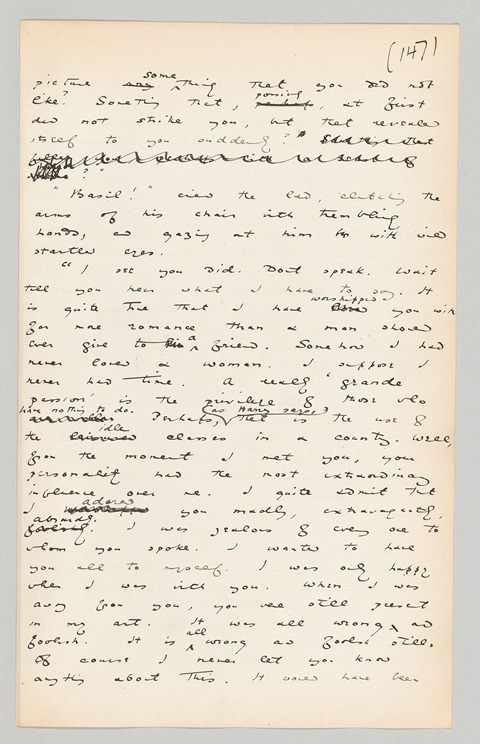 (147)
some
picture any thing that you did not
like? Something that, possibly, at first
did not strike you, but that revealed
itself to you suddenly?"
?"
"Basil!" cried the lad, clutching the
arms of his chair with trembling
hands, and gazing at him with wild
startled eyes.
"I see you did. Don't speak. Wait
till you hear what I have to say. It
worshipped
is quite true that I have loved you with
far more romance than a man should
ever give to a friend. Somehow I had
never loved a woman. I suppose I
never had time. A really 'grande
passion' is the privilege of those who
have nothing to do. (as Harry says,)
Perhaps, that is the use of
idle
the leisured classes in a country. Well,
from the moment I met you, your
personality had the most extraordinary
influence over me. I quite admit that
adored
I you madly, extravagantly,
absurdly.
foolishly. I was jealous of every one to
whom you spoke. I wanted to have
you all to myself. I was only happy
when I was with you. When I was
away from you, you were still present
in my art. It was all wrong and
all
foolish. It is wrong and foolish still.
Of course I never let you know
anything about this. It would have been